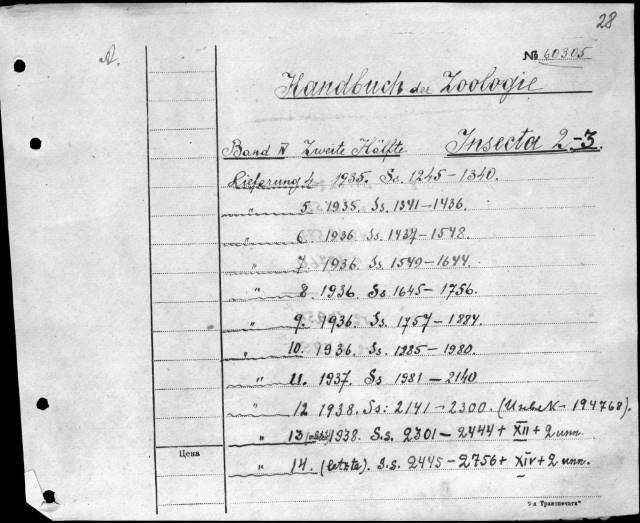 28
№ 60305
Handbuch der Zoologie
Band IV Zweite Hälfte Insecta 2-3.
Lieferung 4 - 1935. Ss. 1245-1340.
" 5. 1935. Ss. 1341-1436.
" 6. 1936. Ss. 1437-1548.
" 7 1936. Ss. 1549-1644.
" 8. 1936. Ss 1645-1756.
" 9. 1936. Ss. 1757-1884.
" 10. 1936. Ss. 1885-1980.
" 11. 1937. Ss 1981-2140
" 12 1938. Ss: 2141-2300. ( N- 194768).
" 13 1938. S.s. 2301-2444 + XII + 2 unn.
Цена
" 14. (letzte). S.s. 2445-2756 + XIV + 2 unn.